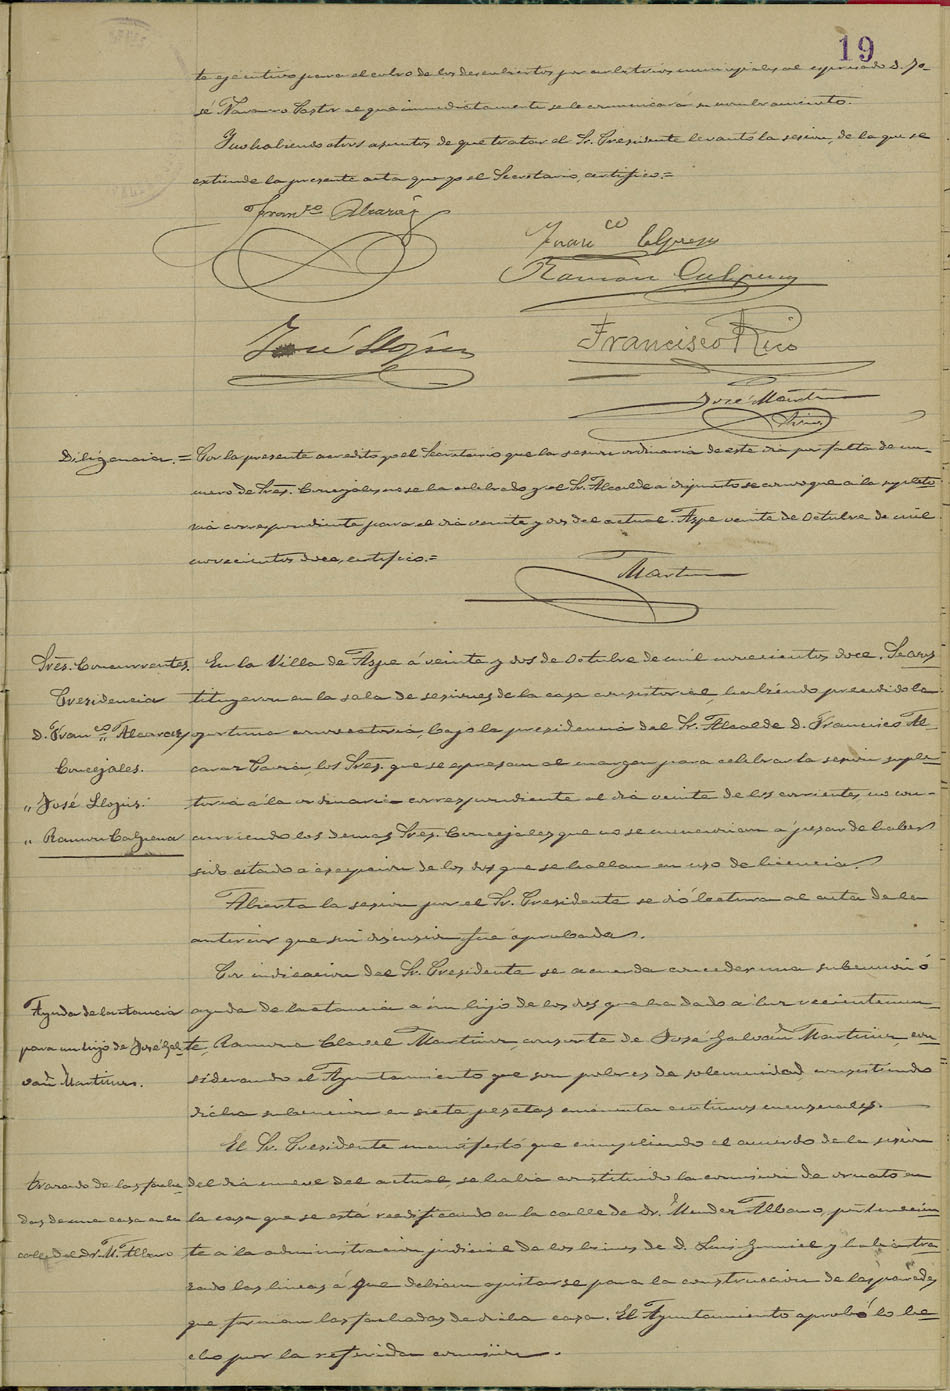 19
te ejecutivo para el cobro de los descubiertos por arbitrios municipales al expresado D. Jo-
sé Navarro Pastor al que inmediatamente se le comunicará su nombramiento.
Y no habiendo otros asuntos de que tratar el Sr. Presidente levantó la sesion, de la que se
extiende la presente acta que yo el Secretario, certifico.=
Franco Alcaraz
Franco Calpena
Ramon Calpena
José Llopis
Francisco Rico
José Martin
Diligencia.= Por la presente acredito yo el Secretario que la sesion ordinaria de este dia por falta de nu-
mero de Sres. Concejales no se ha celebrado y el Sr. Alcalde a dispuesto se convoque a la supleto
ria correspondiente para el dia veinte y dos del actual. Aspe veinte de Octubre de mil
novecientos doce, certifico.=
Martin
Sres. Concurrentes.
Presidencia
D. Franco Alcaraz
Concejales.
" José Llopis.
" Ramon Calpena
En la Villa de Aspe á veinte y dos de Octubre de mil novecientos doce. Se cons
tituyeron en la sala de sesiones de la casa consistorial, habiendo precedido la
oportuna convocatoria, bajo la presidencia del Sr. Alcalde D. Francisco Al-
caraz los Sres. que se expresan al margen para celebrar la sesion suple-
toria á la ordinaria correspondiente al dia veinte de los corrientes, no con-
curriendo los demas Sres. Concejales que no se mencionan a pesar de haber
sido citado a excepcion de los dos que se hallan en uso de licencia.
Abierta la sesion por el Sr. Presidente se dió lectura al acta de la
anterior que sin discusion fue aprobada.
Ayuda de lactancia
para un hijo de José Gal-
vañ Martinez.
Por indicacion del Sr. Presidente se acuerda conceder una subencion ó
ayuda de lactancia a un hijo de los dos que ha dado a luz recientemen-
te, Ramona Clavel Martinez, consorte de José Galvañ Martinez, con
siderando el Ayuntamiento que son pobres de solemnidad, consistiendo
dicha subencion en siete pesetas cincuenta centimos mensuales.
trazado de las facha-
das de una casa en la
calle del Dr. M. Albano
El Sr. Presidente manifestó que cumpliendo el acuerdo de la sesion
del dia nueve del actual, se habia constituido la comision de ornato en
la casa que se está reedificando en la calle de Dr. Mender Albano, pertenecien
te a la administracion judicial de los bienes de D. Luis y habia tra
zado las lineas á que debian ajustarse para la construccion de las paredes
que forman las fachadas de dicha casa. El Ayuntamiento aprobó lo he-
cho por la referida comision.